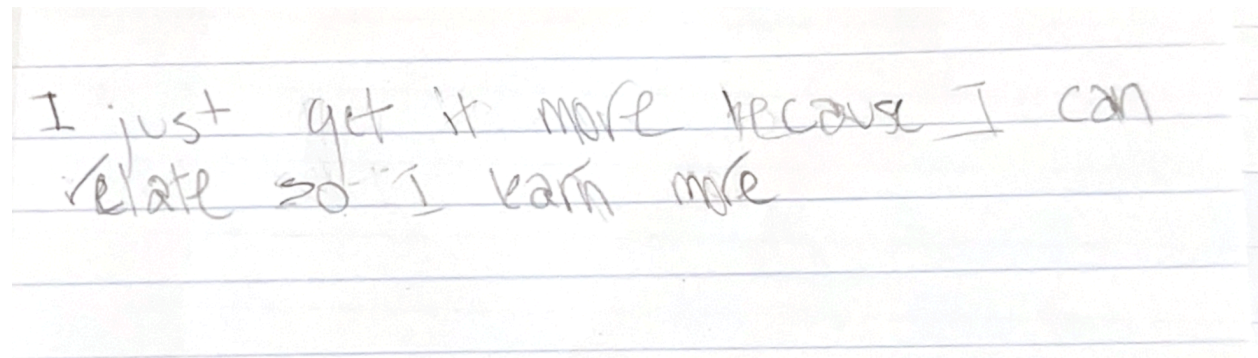 I just get it more because I can
relate so I learn more